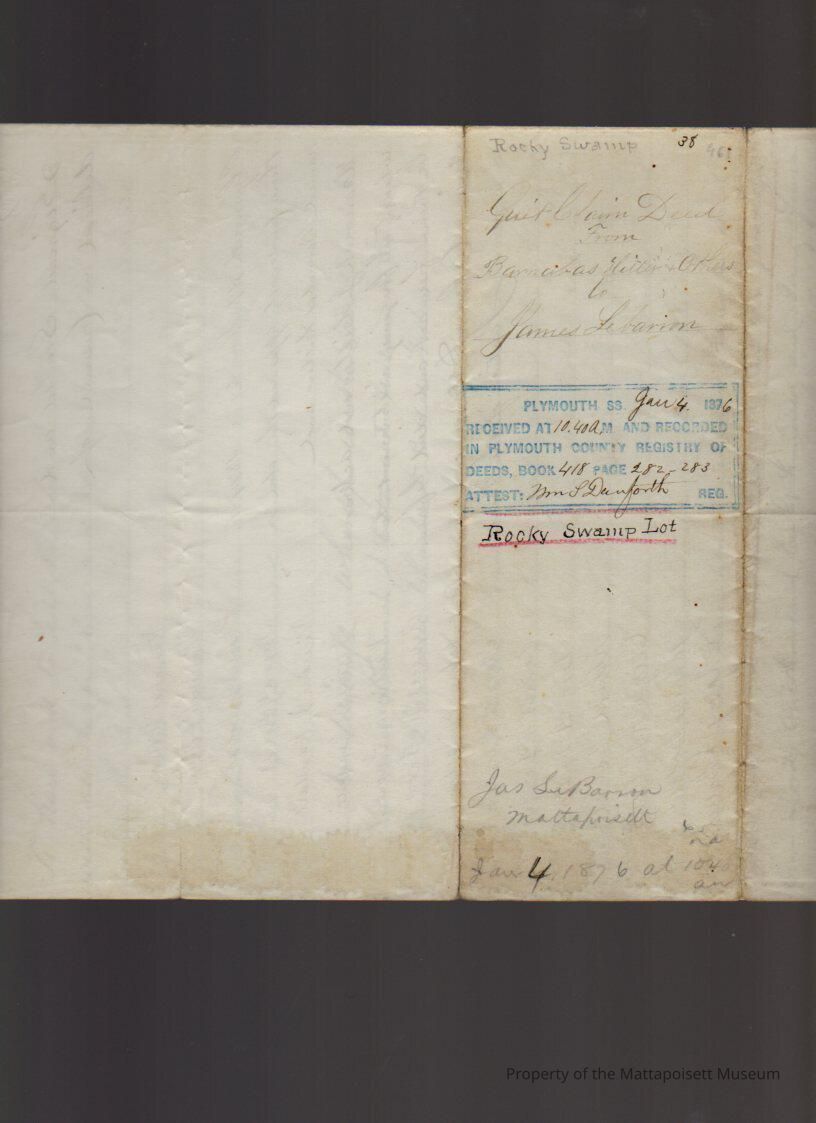 Rocky Swamp 38 461
Quit Claim Deed
From
Barnabas Hiller & Others
to
James Lebarron
PLYMOUTH SS. Jan 4. 1876
RECEIVED AT 10.40 A M AND RECORDED
IN PLYMOUTH COUNTY REGISTRY OF
DEEDS, BOOK 418 PAGE 282-283
ATTEST: Wm S Danforth REG.
Rocky Swamp Lot
Jas LeBarron
Mattapoisett
Jan 4. 1876 at 10 40
am
Property of the Mattapoisett Museum